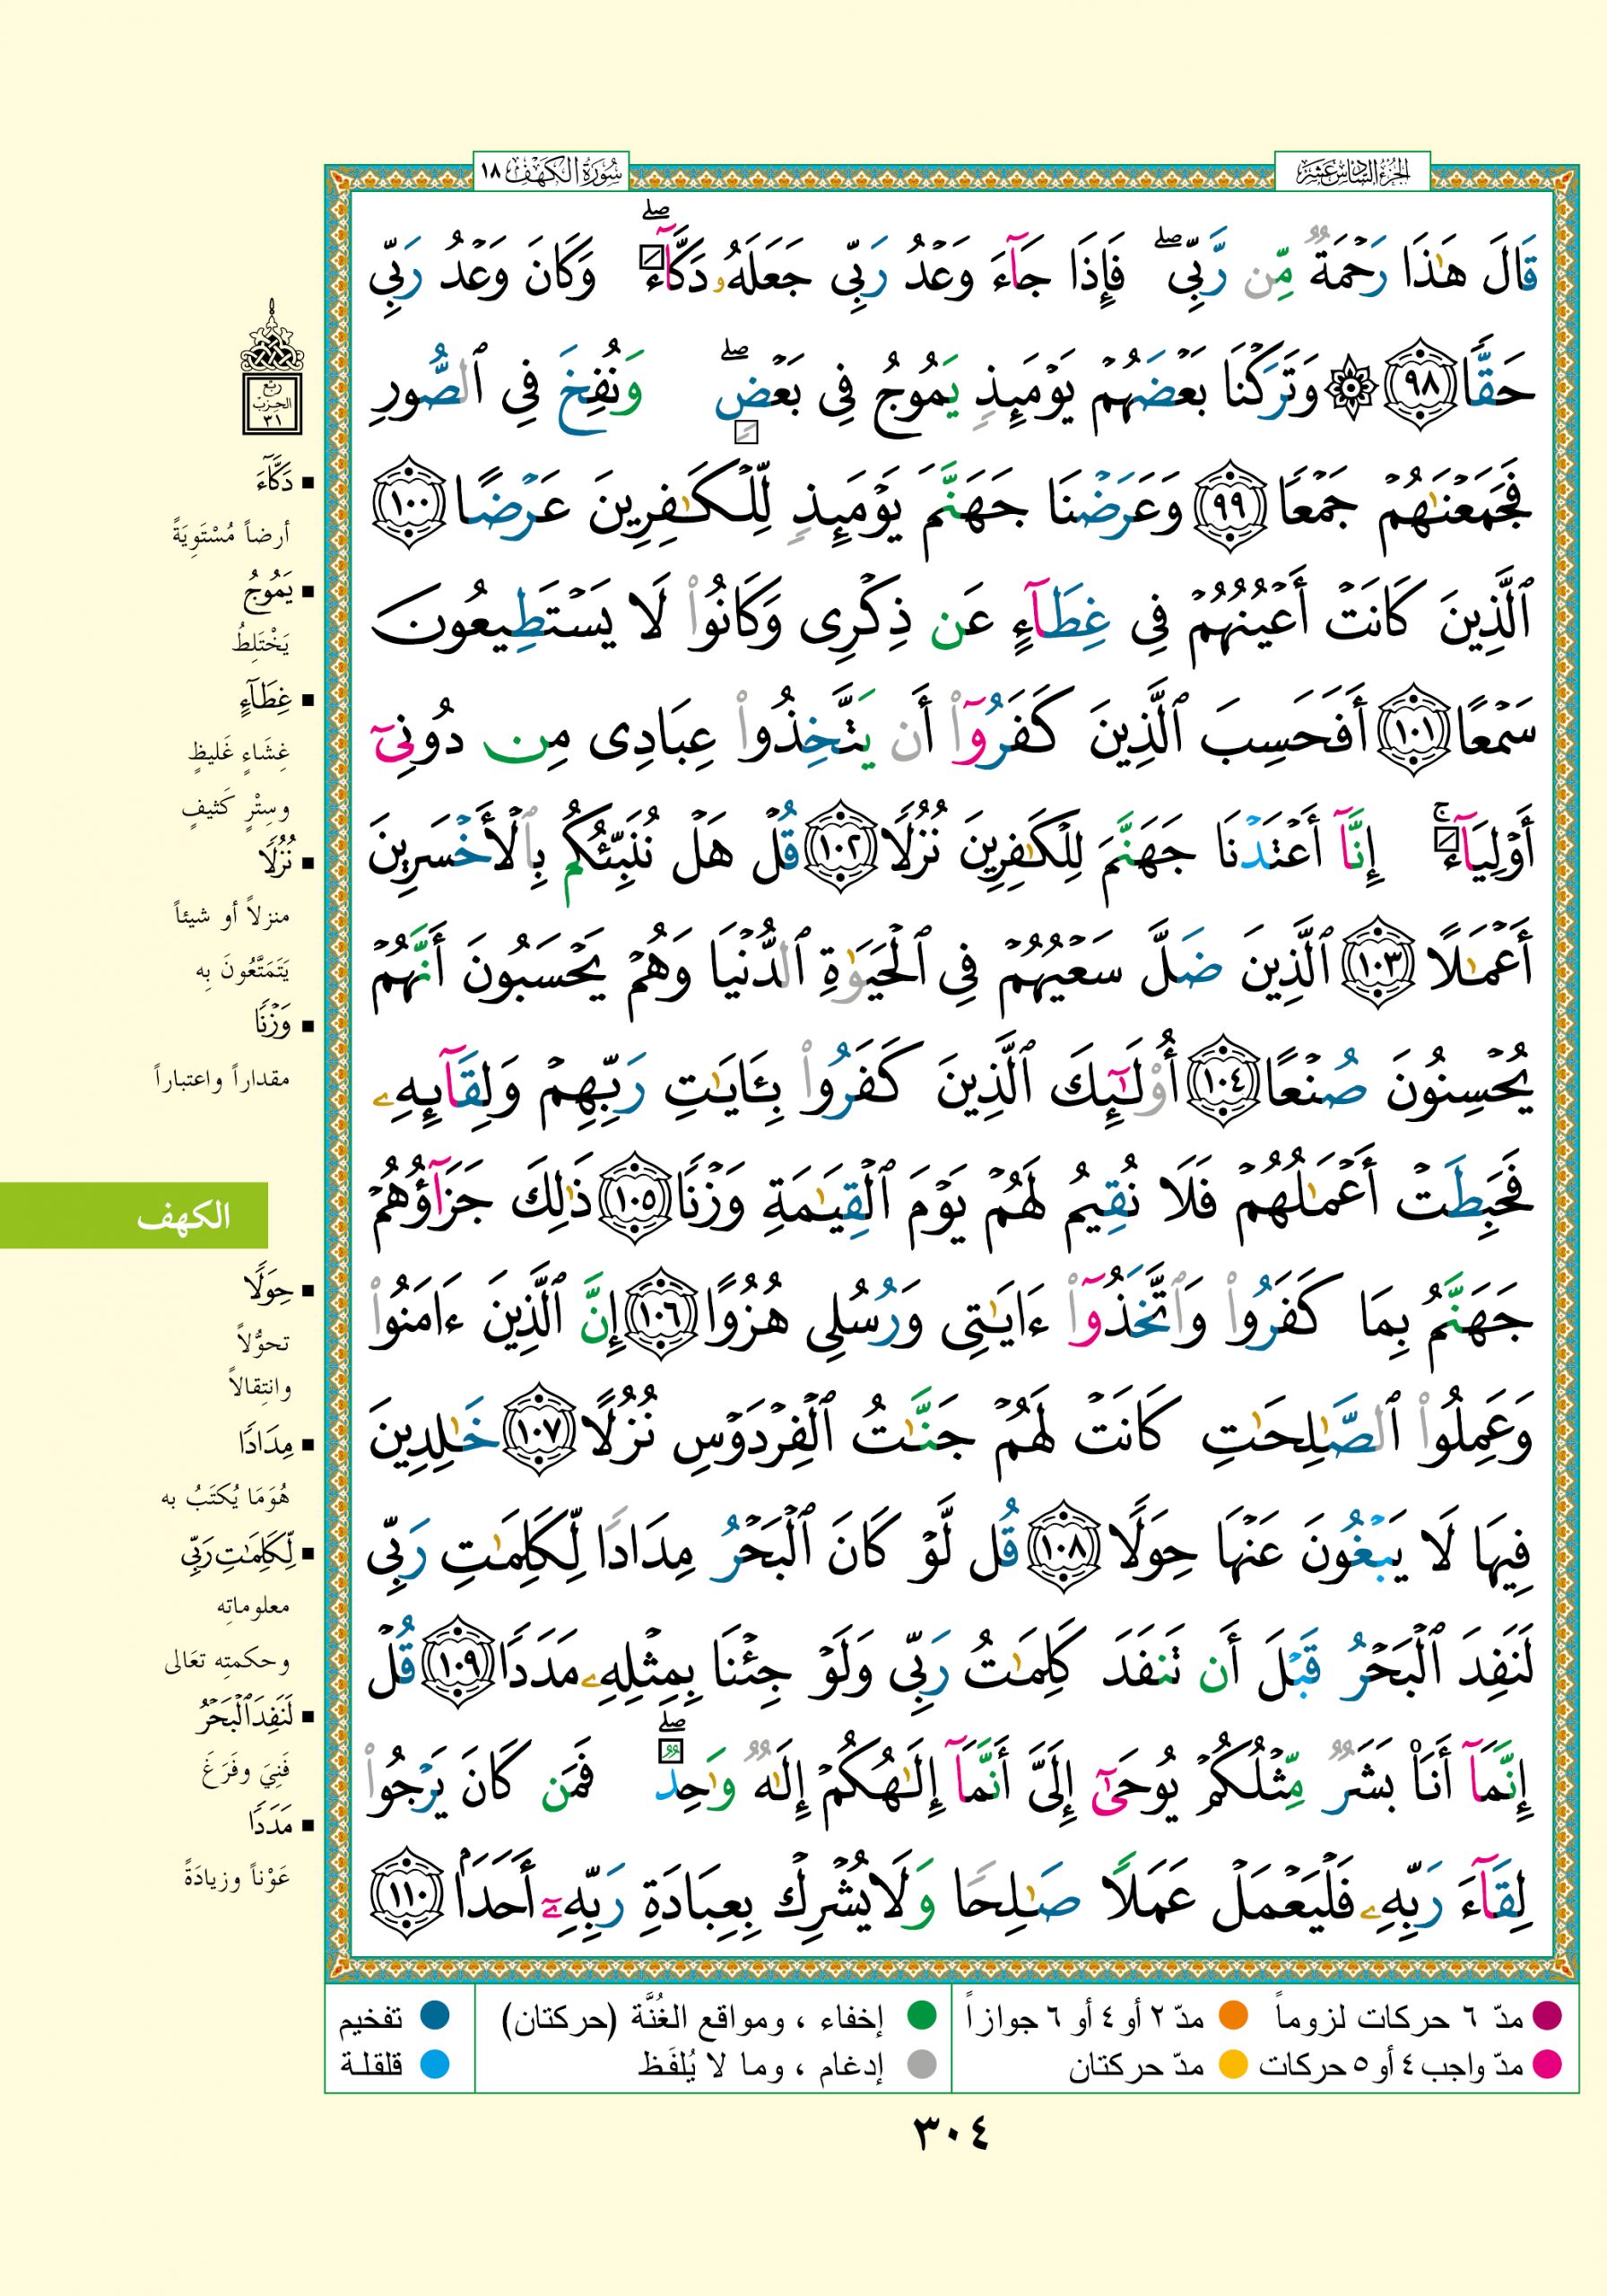 الجزء السادس عشر
سورة الكهف ١٨
قَالَ هَٰذَا رَحْمَةٌ مِّن رَّبِّى ۖ فَإِذَا جَآءَ وَعْدُ رَبِّى جَعَلَهُۥ دَكَّآءَ ۖ وَكَانَ وَعْدُ رَبِّى
حَقًّا ٩٨ ۞ وَتَرَكْنَا بَعْضَهُمْ يَوْمَئِذٍ يَمُوجُ فِى بَعْضٍ ۖ وَنُفِخَ فِى ٱلصُّورِ
فَجَمَعْنَٰهُمْ جَمْعًا ٩٩ وَعَرَضْنَا جَهَنَّمَ يَوْمَئِذٍ لِّلْكَٰفِرِينَ عَرْضًا ١٠٠
ٱلَّذِينَ كَانَتْ أَعْيُنُهُمْ فِى غِطَآءٍ عَن ذِكْرِى وَكَانُوا۟ لَا يَسْتَطِيعُونَ
سَمْعًا ١٠١ أَفَحَسِبَ ٱلَّذِينَ كَفَرُوٓا۟ أَن يَتَّخِذُوا۟ عِبَادِى مِن دُونِىٓ
أَوْلِيَآءَ ۚ إِنَّآ أَعْتَدْنَا جَهَنَّمَ لِلْكَٰفِرِينَ نُزُلًا ١٠٢ قُلْ هَلْ نُنَبِّئُكُم بِٱلْأَخْسَرِينَ
أَعْمَٰلًا ١٠٣ ٱلَّذِينَ ضَلَّ سَعْيُهُمْ فِى ٱلْحَيَوٰةِ ٱلدُّنْيَا وَهُمْ يَحْسَبُونَ أَنَّهُمْ
يُحْسِنُونَ صُنْعًا ١٠٤ أُو۟لَٰٓئِكَ ٱلَّذِينَ كَفَرُوا۟ بِـَٔايَٰتِ رَبِّهِمْ وَلِقَآئِهِۦ
فَحَبِطَتْ أَعْمَٰلُهُمْ فَلَا نُقِيمُ لَهُمْ يَوْمَ ٱلْقِيَٰمَةِ وَزْنًا ١٠٥ ذَٰلِكَ جَزَآؤُهُمْ
جَهَنَّمُ بِمَا كَفَرُوا۟ وَٱتَّخَذُوٓا۟ ءَايَٰتِى وَرُسُلِى هُزُوًا ١٠٦ إِنَّ ٱلَّذِينَ ءَامَنُوا۟
وَعَمِلُوا۟ ٱلصَّٰلِحَٰتِ كَانَتْ لَهُمْ جَنَّٰتُ ٱلْفِرْدَوْسِ نُزُلًا ١٠٧ خَٰلِدِينَ
فِيهَا لَا يَبْغُونَ عَنْهَا حِوَلًا ١٠٨ قُل لَّوْ كَانَ ٱلْبَحْرُ مِدَادًا لِّكَلِمَٰتِ رَبِّى
لَنَفِدَ ٱلْبَحْرُ قَبْلَ أَن تَنفَدَ كَلِمَٰتُ رَبِّى وَلَوْ جِئْنَا بِمِثْلِهِۦ مَدَدًا ١٠٩ قُلْ
إِنَّمَآ أَنَا۠ بَشَرٌ مِّثْلُكُمْ يُوحَىٰٓ إِلَىَّ أَنَّمَآ إِلَٰهُكُمْ إِلَٰهٌ وَٰحِدٌ ۖ فَمَن كَانَ يَرْجُوا۟
لِقَآءَ رَبِّهِۦ فَلْيَعْمَلْ عَمَلًا صَٰلِحًا وَلَا يُشْرِكْ بِعِبَادَةِ رَبِّهِۦٓ أَحَدًۢا ١١٠
ربع
الحزب
٣١
دَكَّآءَ
أرضاً مُسْتَوِيَةً
يَمُوجُ
يَخْتَلِطُ
غِطَآءٍ
غِشَاءٍ غَليظٍ
وسِتْرٍ كَثيفٍ
نُزُلًا
منزلاً أو شيئاً
يَتَمَتَّعُونَ بِه
وَزْنًا
مقداراً واعتباراً
الكهف
حِوَلًا
تحوُّلاً
وانتِقالاً
مِدَادًا
هُوَ مَا يُكتَبُ به
لِّكَلِمَٰتِ رَبِّى
معلوماتِه
وحكمتِه تعَالى
لَنَفِدَ ٱلْبَحْرُ
فَنِيَ وفَرَغَ
مَدَدًا
عَوْناً وزيادَةً
مدّ ٦ حركات لزوماً مدّ ٢ أو ٤ أو ٦ جوازاً إخفاء ، ومواقع الغُنَّة (حركتان) تفخيم
مدّ واجب ٤ أو ٥ حركات مدّ حركتان إدغام ، وما لا يُلفَظ قلقلة
٣٠٤